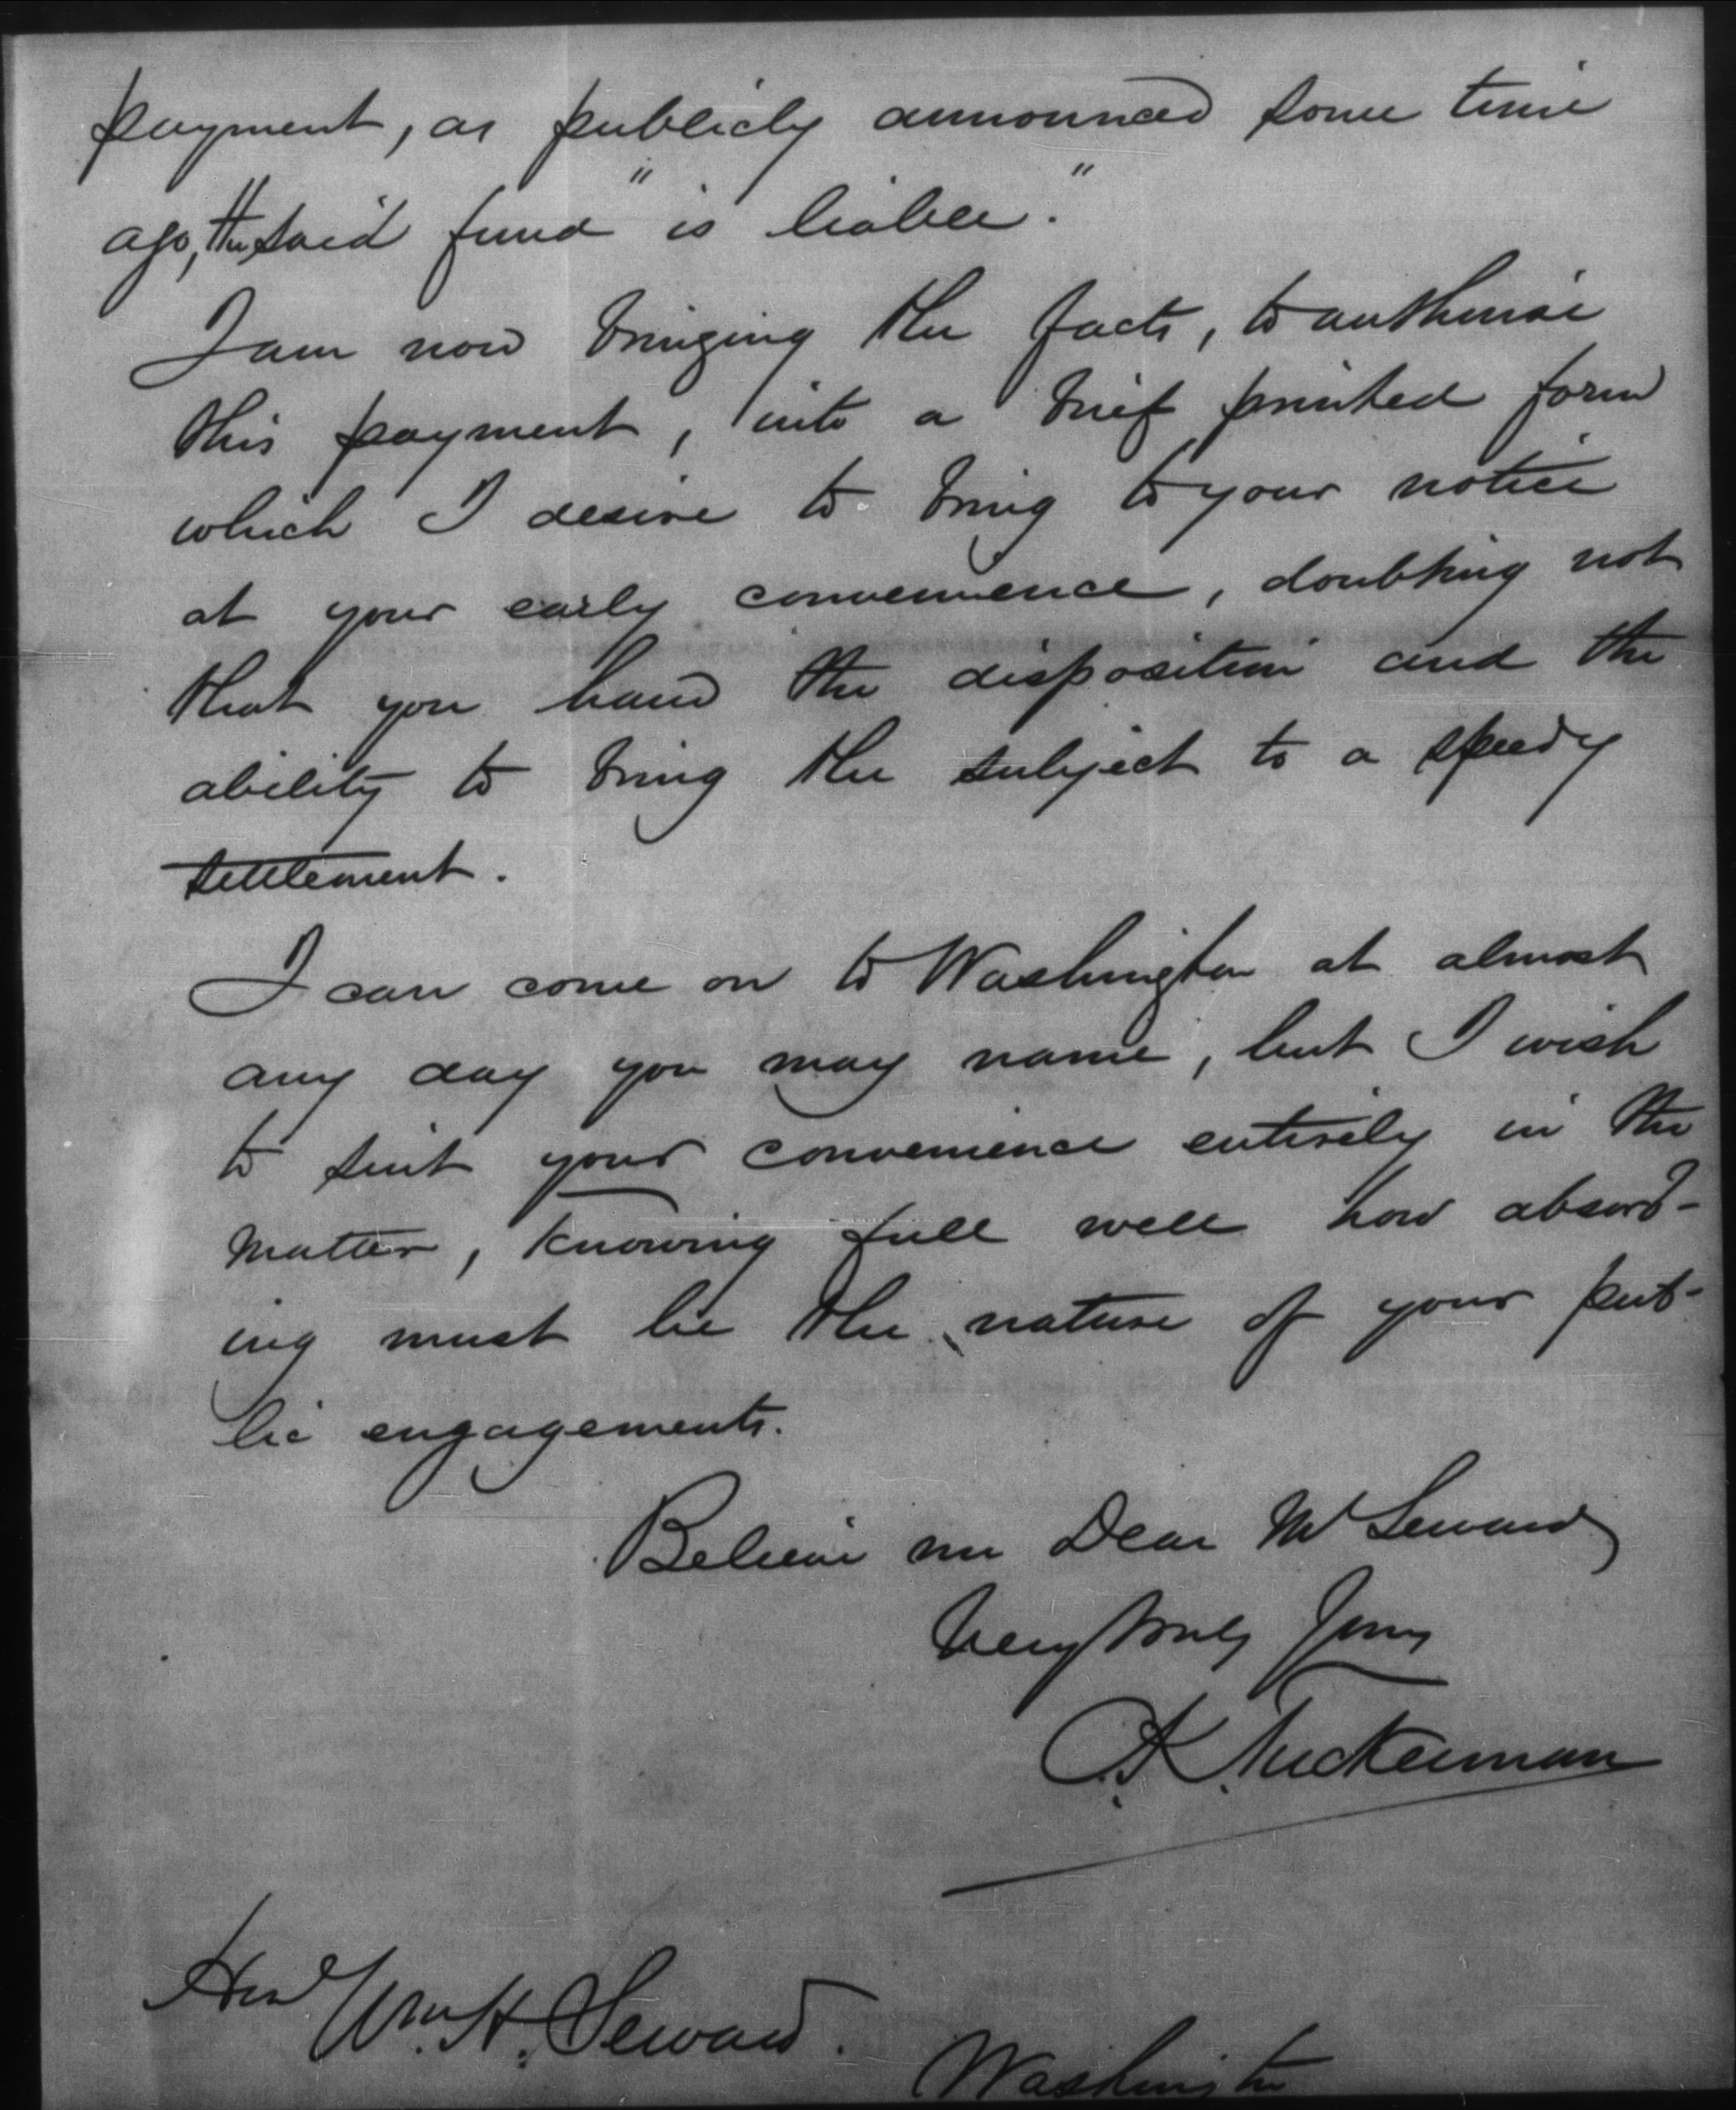 payment, as publicly announced some time
ago, the said fund "is liable."
I am now bringing the facts, to authorise
this payment, into a brief printed form
which I desire to bring to your notice
at your early convenience, doubting not
that you have the disposition and the
ability to bring the subject to a speedy
settlement.
I can come on to Washington at almost
any day you may name, but I wish
to suit your convenience entirely in the
matter, knowing full well how absorb-
ing must be the nature of your pub-
lic engagements.
Believe me Dear Mr Seward
Very truly Yours
C. K. Tuckerman
Hon Wm. H. Seward.
Washington